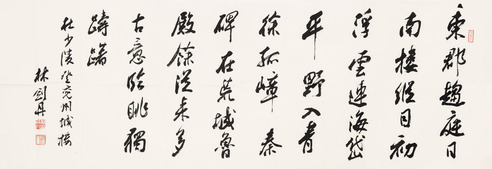 東郡趨庭日
南樓縱目初
浮雲連海岱
平野入青
徐孤嶂秦
碑在荒城魯
殿餘從來多
古意臨眺獨
躊躇
杜少陵登兗州城樓
林劍丹